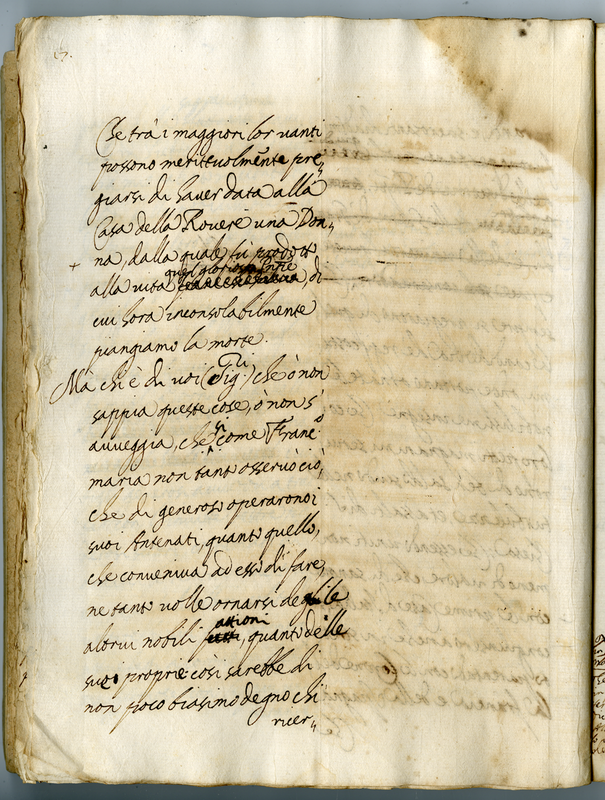 Che trà i maggiori lor vanti
possono meriteuolmẽte pre„
giarsi di hauer data alla
Casa della Rouere una Don„
na, dalla quale fu prodott
+
alla vita quel glorioso , di
cui hora inconsolabilmente
piangiamo la morte.
Mà chi è di uoi (Sig.ri) che ò non
sappia queste cose, ò non s'
auueggia, che si come Franc.o
maria non tanto osseruò ciò,
che di generoso operarono i
suoi Antenati, quanto quello,
che conueniua ad essi di fare,
ne tanto uolle ornarsi delle
altrui nobili attioni, quanto delle
sue proprie: così sarebbe di
non poco biasimo degno chi
ricer„